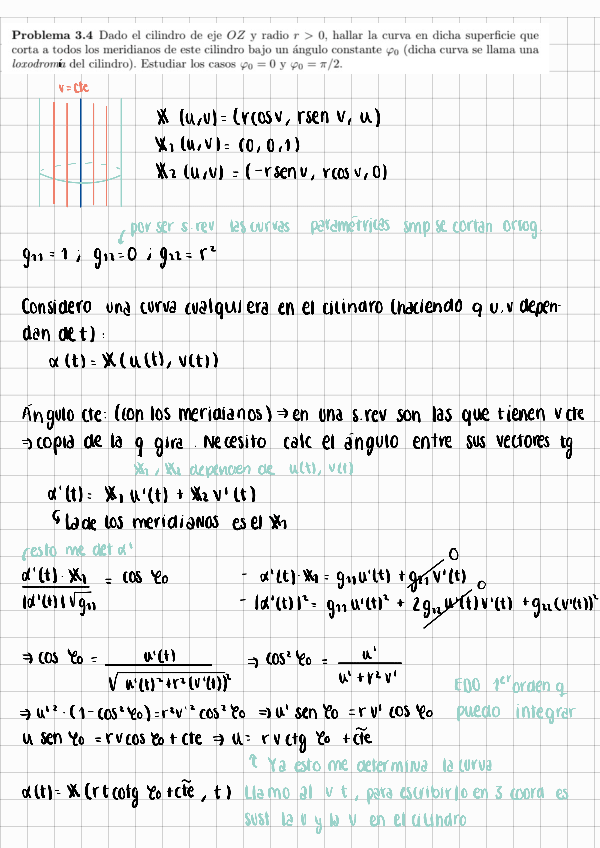 Problema 3.4 Dado el cilindro de eje OZ y radio r > 0, hallar la curva en dicha superficie que
corta a todos los meridianos de este cilindro bajo un ángulo constante φ₀ (dicha curva se llama una
loxodromia del cilindro). Estudiar los casos φ₀ = 0 y φ₀ = π/2.
v = cte
𝕏 (u,v) = (r cos v, r sen v, u)
𝕏₁ (u,v) = (0, 0, 1)
𝕏₂ (u,v) = (-r sen v, r cos v, 0)
por ser s. rev las curvas paramétricas smp se cortan ortog.
g₁₁ = 1 ; g₁₂ = 0 ; g₂₂ = r²
Considero una curva cualquiera en el cilindro (haciendo q u, v depen-
dan de t) :
α (t) = 𝕏 (u(t), v(t))
Ángulo cte: (con los meridianos) → en una s. rev son las que tienen v cte
⇒ copia de la q gira. Necesito calc el ángulo entre sus vectores tg
𝕏₁, 𝕏₂ dependen de u(t), v(t)
α'(t) = 𝕏₁ u'(t) + 𝕏₂ v'(t)
↳ la de los meridianos es el 𝕏₁
esto me det α'
α'(t) · 𝕏₁ / |α'(t)| √g₁₁ = cos φ₀ - α'(t) · 𝕏₁ = g₁₁ u'(t) + g₂₁ v'(t) 0
- |α'(t)|² = g₁₁ u'(t)² + 2g₁₂ u'(t) v'(t) + g₂₂ (v'(t))² 0
⇒ cos φ₀ = u'(t) / √(u'(t)² + r² (v'(t))²) ⇒ cos² φ₀ = u' / u' + r² v'
EDO 1er orden q
⇒ u'² · (1 - cos² φ₀) = r² v'² cos² φ₀ ⇒ u' sen φ₀ = r v' cos φ₀ puedo integrar
u sen φ₀ = r v cos φ₀ + cte ⇒ u = r v ctg φ₀ + c̃te
↑ Ya esto me determina la curva
α(t) = 𝕏 (r t cotg φ₀ + c̃te , t) Llamo al v t, para escribirlo en 3 coord es
sust la u y la v en el cilindro